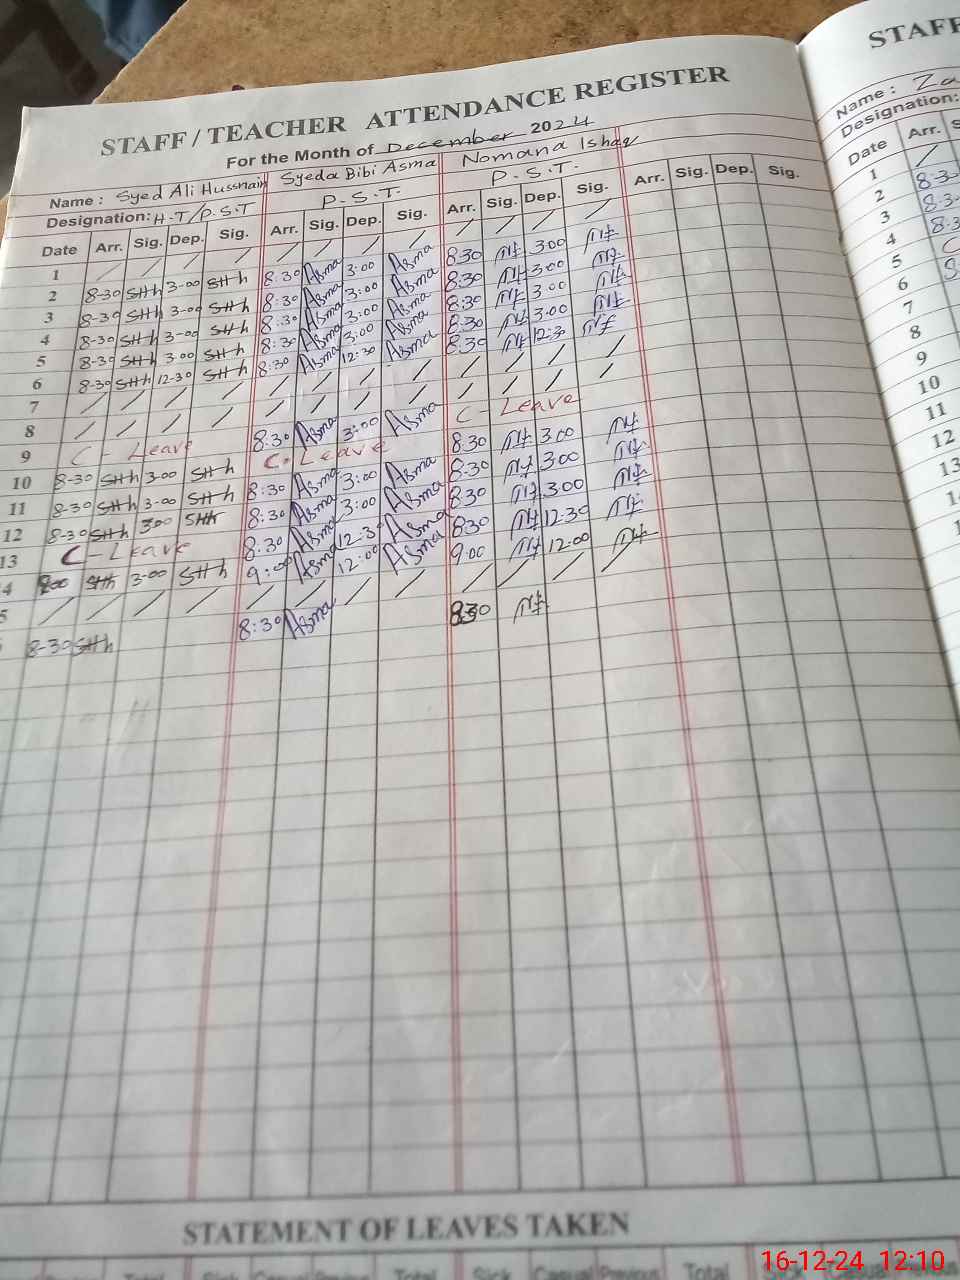 STAFF / TEACHER ATTENDANCE REGISTER
For the Month of December 2024
Name : Syed Ali Hussnain Syeda Bibi Asma Nomana Ishaq
Designation: H.T/P.S.T P.S.T. P.S.T.
Date Arr. Sig. Dep. Sig. Arr. Sig. Dep. Sig. Arr. Sig. Dep. Sig. Arr. Sig. Dep. Sig.
1 / / / / / / / / / / / /
2 8-30 SHh 3-00 SHh 8:30 Asma 3:00 Asma 8:30 3:00
3 8-30 SHh 3-00 SHh 8:30 Asma 3:00 Asma 8:30 3:00
4 8-30 SHh 3-00 SHh 8:30 Asma 3:00 Asma 8:30 3:00
5 8-30 SHh 3:00 SHh 8:30 Asma 3:00 Asma 8:30 3:00
6 8-30 SHh 12-30 SHh 8:30 Asma 12:30 Asma 8:30 12:30
7 / / / / / / / / / / / /
8 / / / / / / / / / / / /
9 C - Leave 8:30 Asma 3:00 Asma C - Leave
10 8-30 SHh 3-00 SHh C. Leave 8:30 3:00
11 8-30 SHh 3-00 SHh 8:30 Asma 3:00 Asma 8:30 3:00
12 8-30 SHh 300 SHh 8:30 Asma 3:00 Asma 8:30 3:00
13 C - Leave 8:30 Asma 12:30 Asma 8:30 12:30
4 900 SHh 3-00 SHh 9:00 Asma 12:00 Asma 9:00 12:00
5 / / / / / / / / / /
8-30 SHh 8:30 Asma 830
STATEMENT OF LEAVES TAKEN
Total Sick Casual Previous Total
STAFF
Name : Za
Designation:
Date Arr. S
1 /
2 8-3
3 8-3
4 8-3
5 C
6
7
8
9
10
11
12
13
16-12-24 12:10